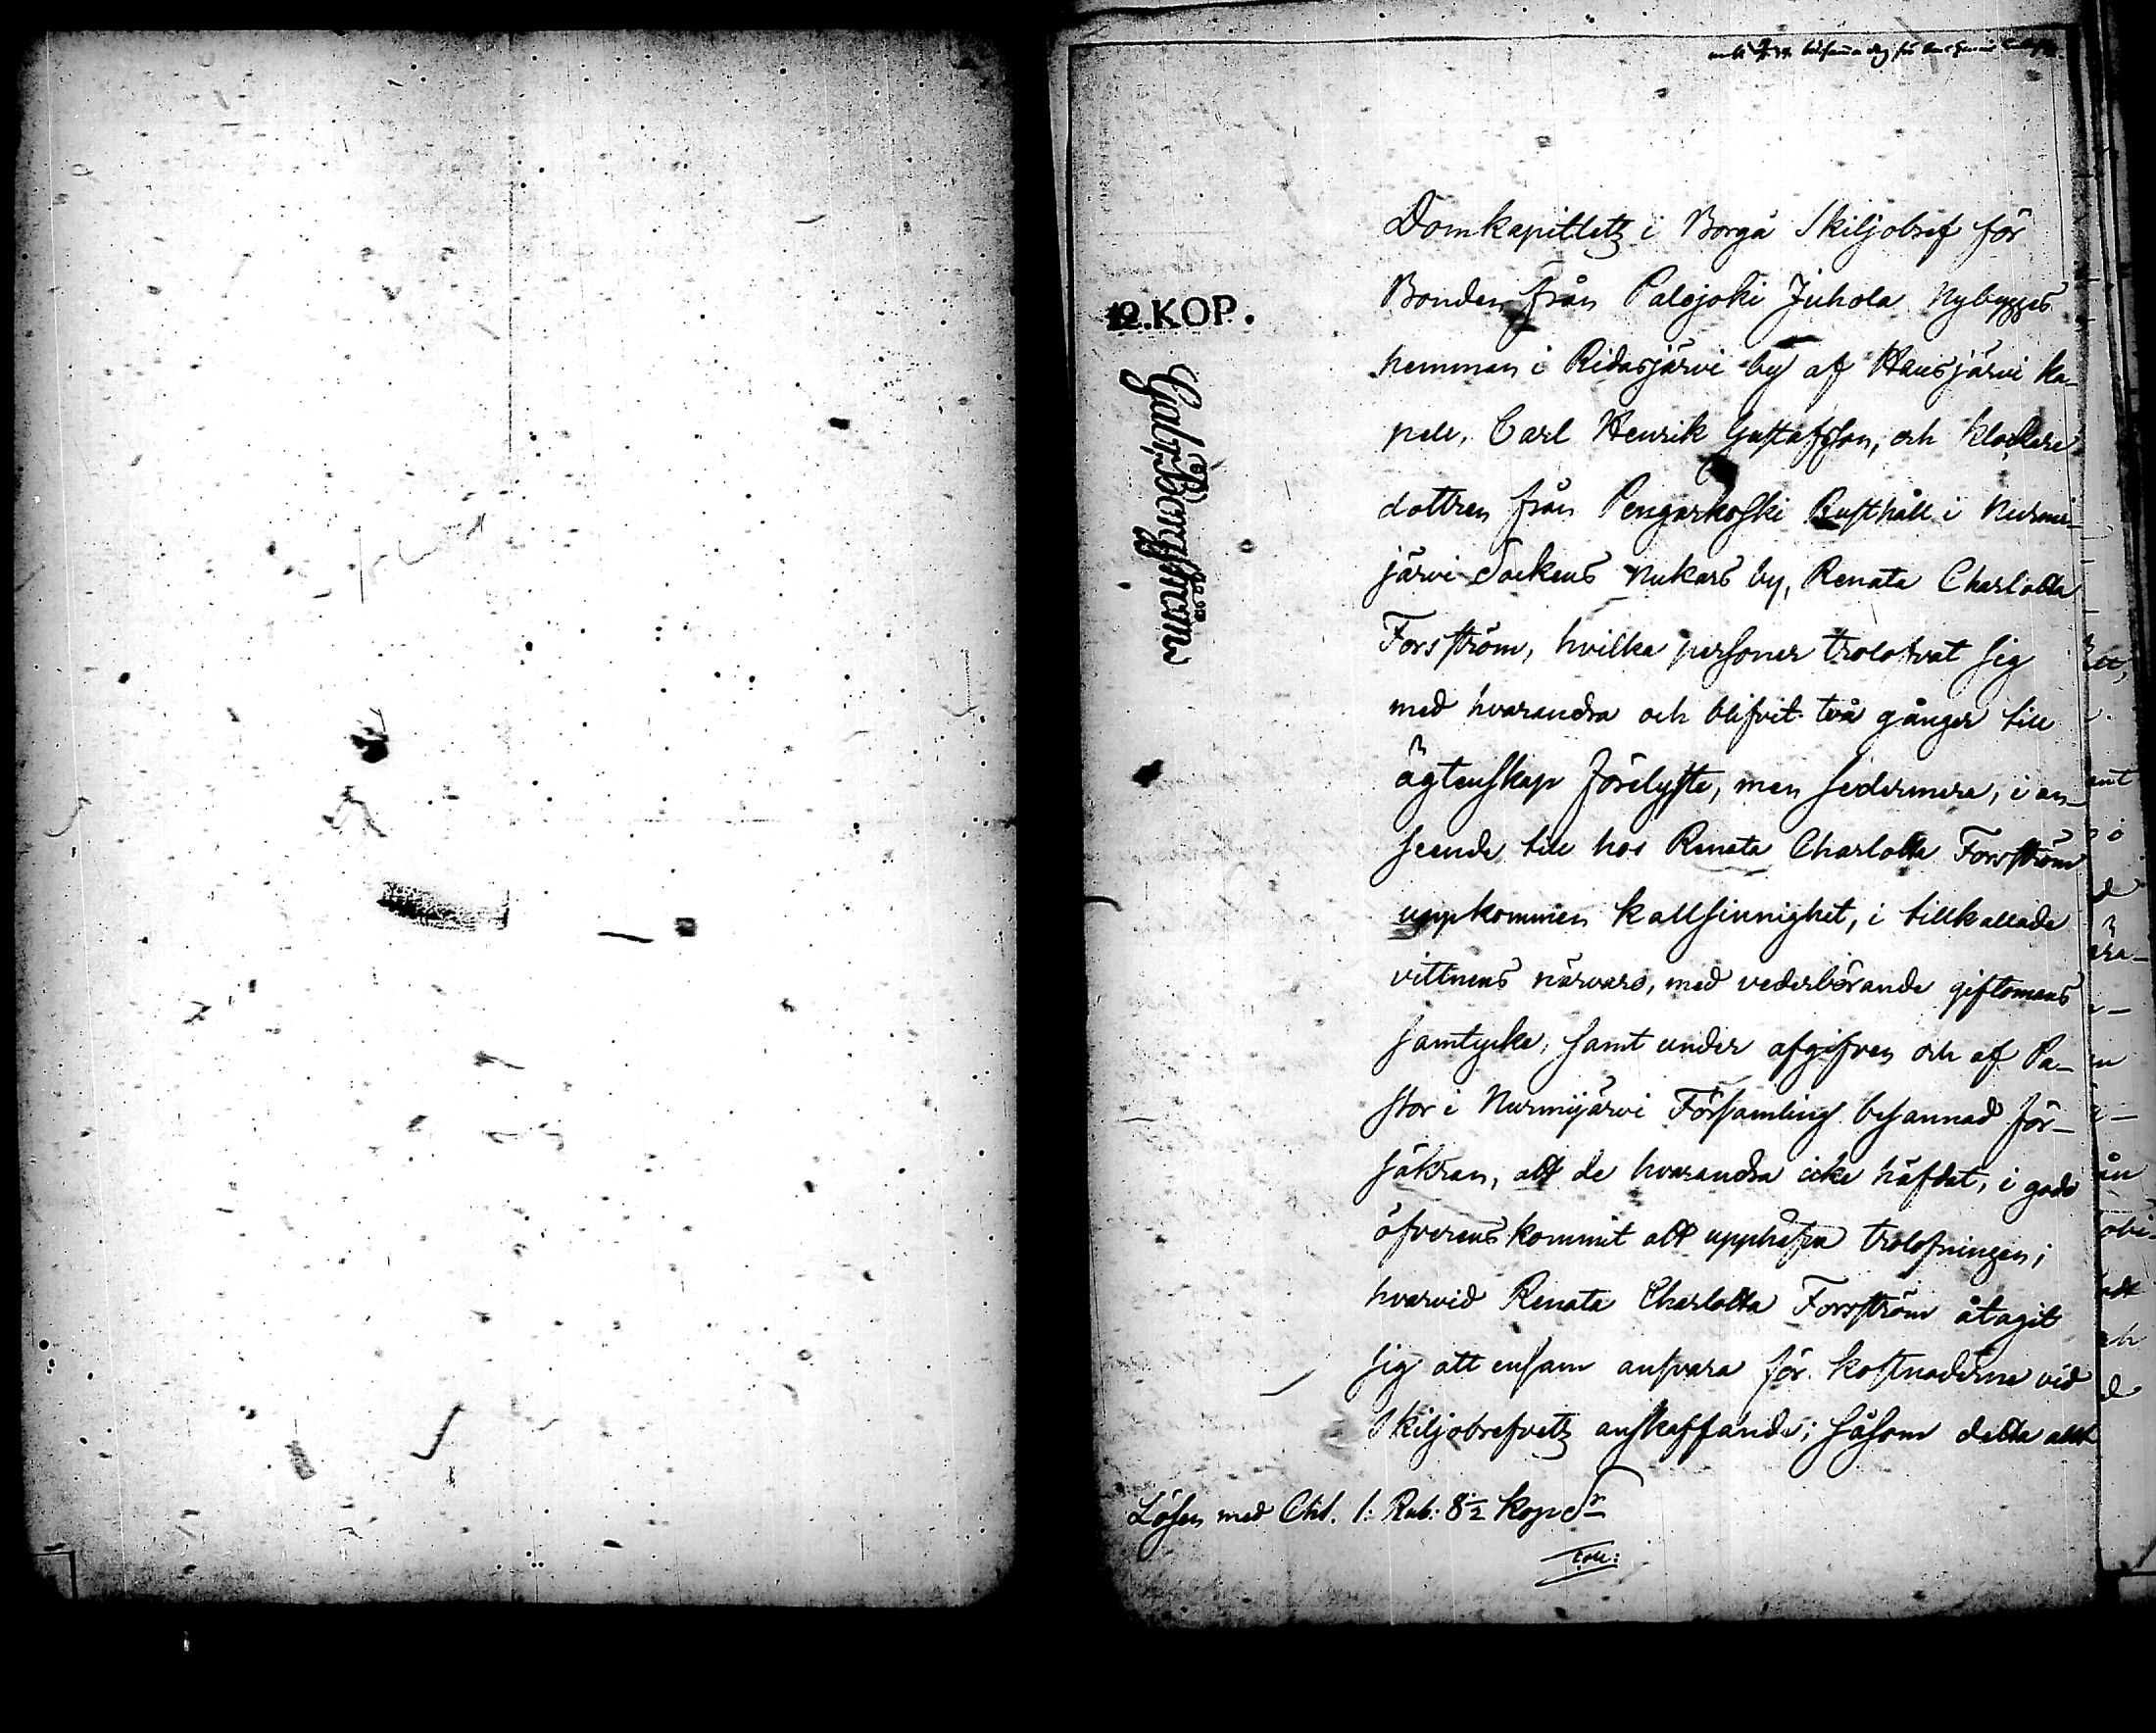 12.KOP.
Domkapitlets i Borgå Skiljobref för
Bonden från Palojoki Juhola Nybygges
hemman i Ridasjärvi by af Hausjärvi ka-
pell, Carl Henrik Gustafsson, och klockare
dottren från Pengarkoski Rusthåll i Nurmi-
järvi Sockens Nukars by, Renata Charlotta
Forsström, hvilka personer trolofvat sig
med hvarandra och blifvit två gånger till
ägtenskap förelyste, men sedermera, i an-
seende till hos Renata Charlotta Forsström
uppkommen kallsinnighet, i tillkallade
vittnens närvaro, med vederbörande giftomans
samtycke, samt under afgifven och af Pa-
stor i Nurmijärvi Församling besannad för-
säkran, att de hvarandra icke häfdat, i godo
öfverenskommit att upphäfva trolofningen;
hvarvid Renata Charlotta Forsström åtagit
sig att ensam ansvara för kostnaderne vid
Skiljobrefvets anskaffande; såsom detta allt
Lösen med Cht. 1: Rub: 8½ kop Sr